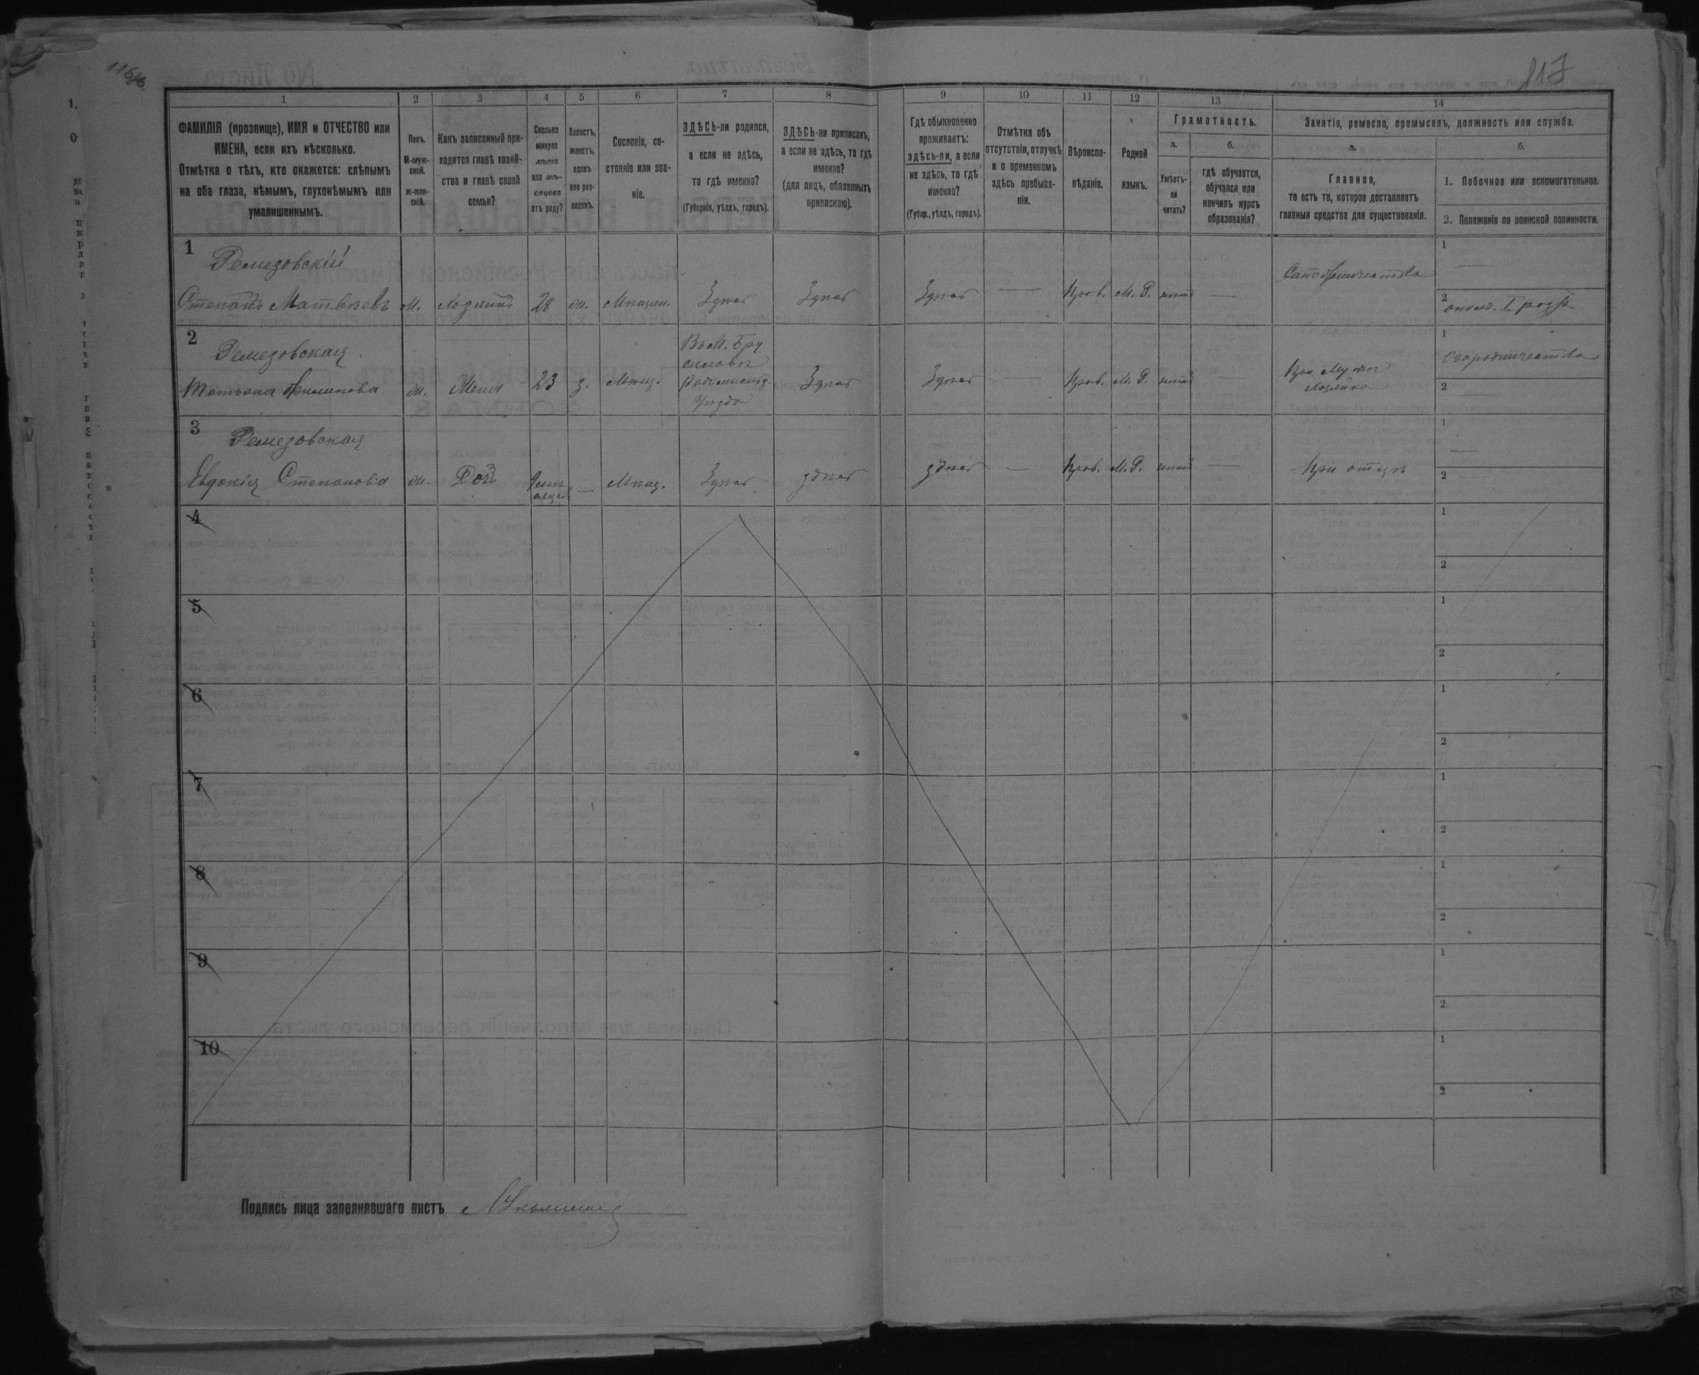 117
1 2 3 4 5 6 7 8 9 10 11 12 13 14
ФАМИЛІЯ (прозвище), ИМЯ и ОТЧЕСТВО или
ИМЕНА, если ихъ нѣсколько.
Отмѣтка о тѣхъ, кто окажется: слѣпымъ
на оба глаза, нѣмымъ, глухонѣмымъ или
умалишеннымъ.
Полъ.
М-муж-
ской.
ж-жен-
скій.
Какъ записанный при-
ходится главѣ хозяй-
ства и главѣ своей
семьи?
Сколько
минуло
лѣтъ
или мѣ-
сяцевъ
отъ роду?
Холостъ,
женатъ,
вдовъ
или раз-
веденъ.
Сословіе, со-
стояніе или зва-
ніе.
ЗДѢСЬ-ли родился,
а если не здѣсь,
то гдѣ именно?
(Губернія, уѣздъ, городъ).
ЗДѢСЬ-ли приписанъ,
а если не здѣсь, то гдѣ
именно?
(для лицъ, обязанныхъ
припискою).
Гдѣ обыкновенно
проживаетъ:
здѣсь-ли, а если
не здѣсь, то гдѣ
именно?
(Губер., уѣздъ, городъ).
Отмѣтка объ
отсутствіи, отлучкѣ
и о временномъ
здѣсь пребыва-
ніи.
Вѣроиспо-
вѣданіе.
Родной
языкъ.
Грамотность.
а.
Умѣетъ-
ли
читать?
б.
гдѣ обучается,
обучался или
кончилъ курсъ
образованія?
Занятіе, ремесло, промыселъ, должность или служба.
а.
Главное,
то есть то, которое доставляетъ
главныя средства для существованія.
б.
1. Побочное или вспомогательное.
2. Положеніе по воинской повинности.
1 Ремезовскій
Степанъ Матвѣевъ м. Хозяинъ 28 ж. Мѣщан. Здѣсь Здѣсь Здѣсь — Прав. М. Р. нѣтъ —
1 —
2
2 Ремезовская
Татьяна ж. Жена 23 з. Мѣщ.
уѣзда
Здѣсь Здѣсь — Прав. М. Р. нѣтъ —
При мужѣ
1 Огородничества
2 —
3 Ремезовская
Евдокія Степанова ж. Дочь — Мѣщ. Здѣсь здѣсь здѣсь — Прав. М. Р. нѣтъ — При отцѣ
1 —
2 —
4 1
2
5 1
2
6 1
2
7 1
2
8 1
2
9 1
2
10 1
2
Подпись лица заполнявшаго листъ